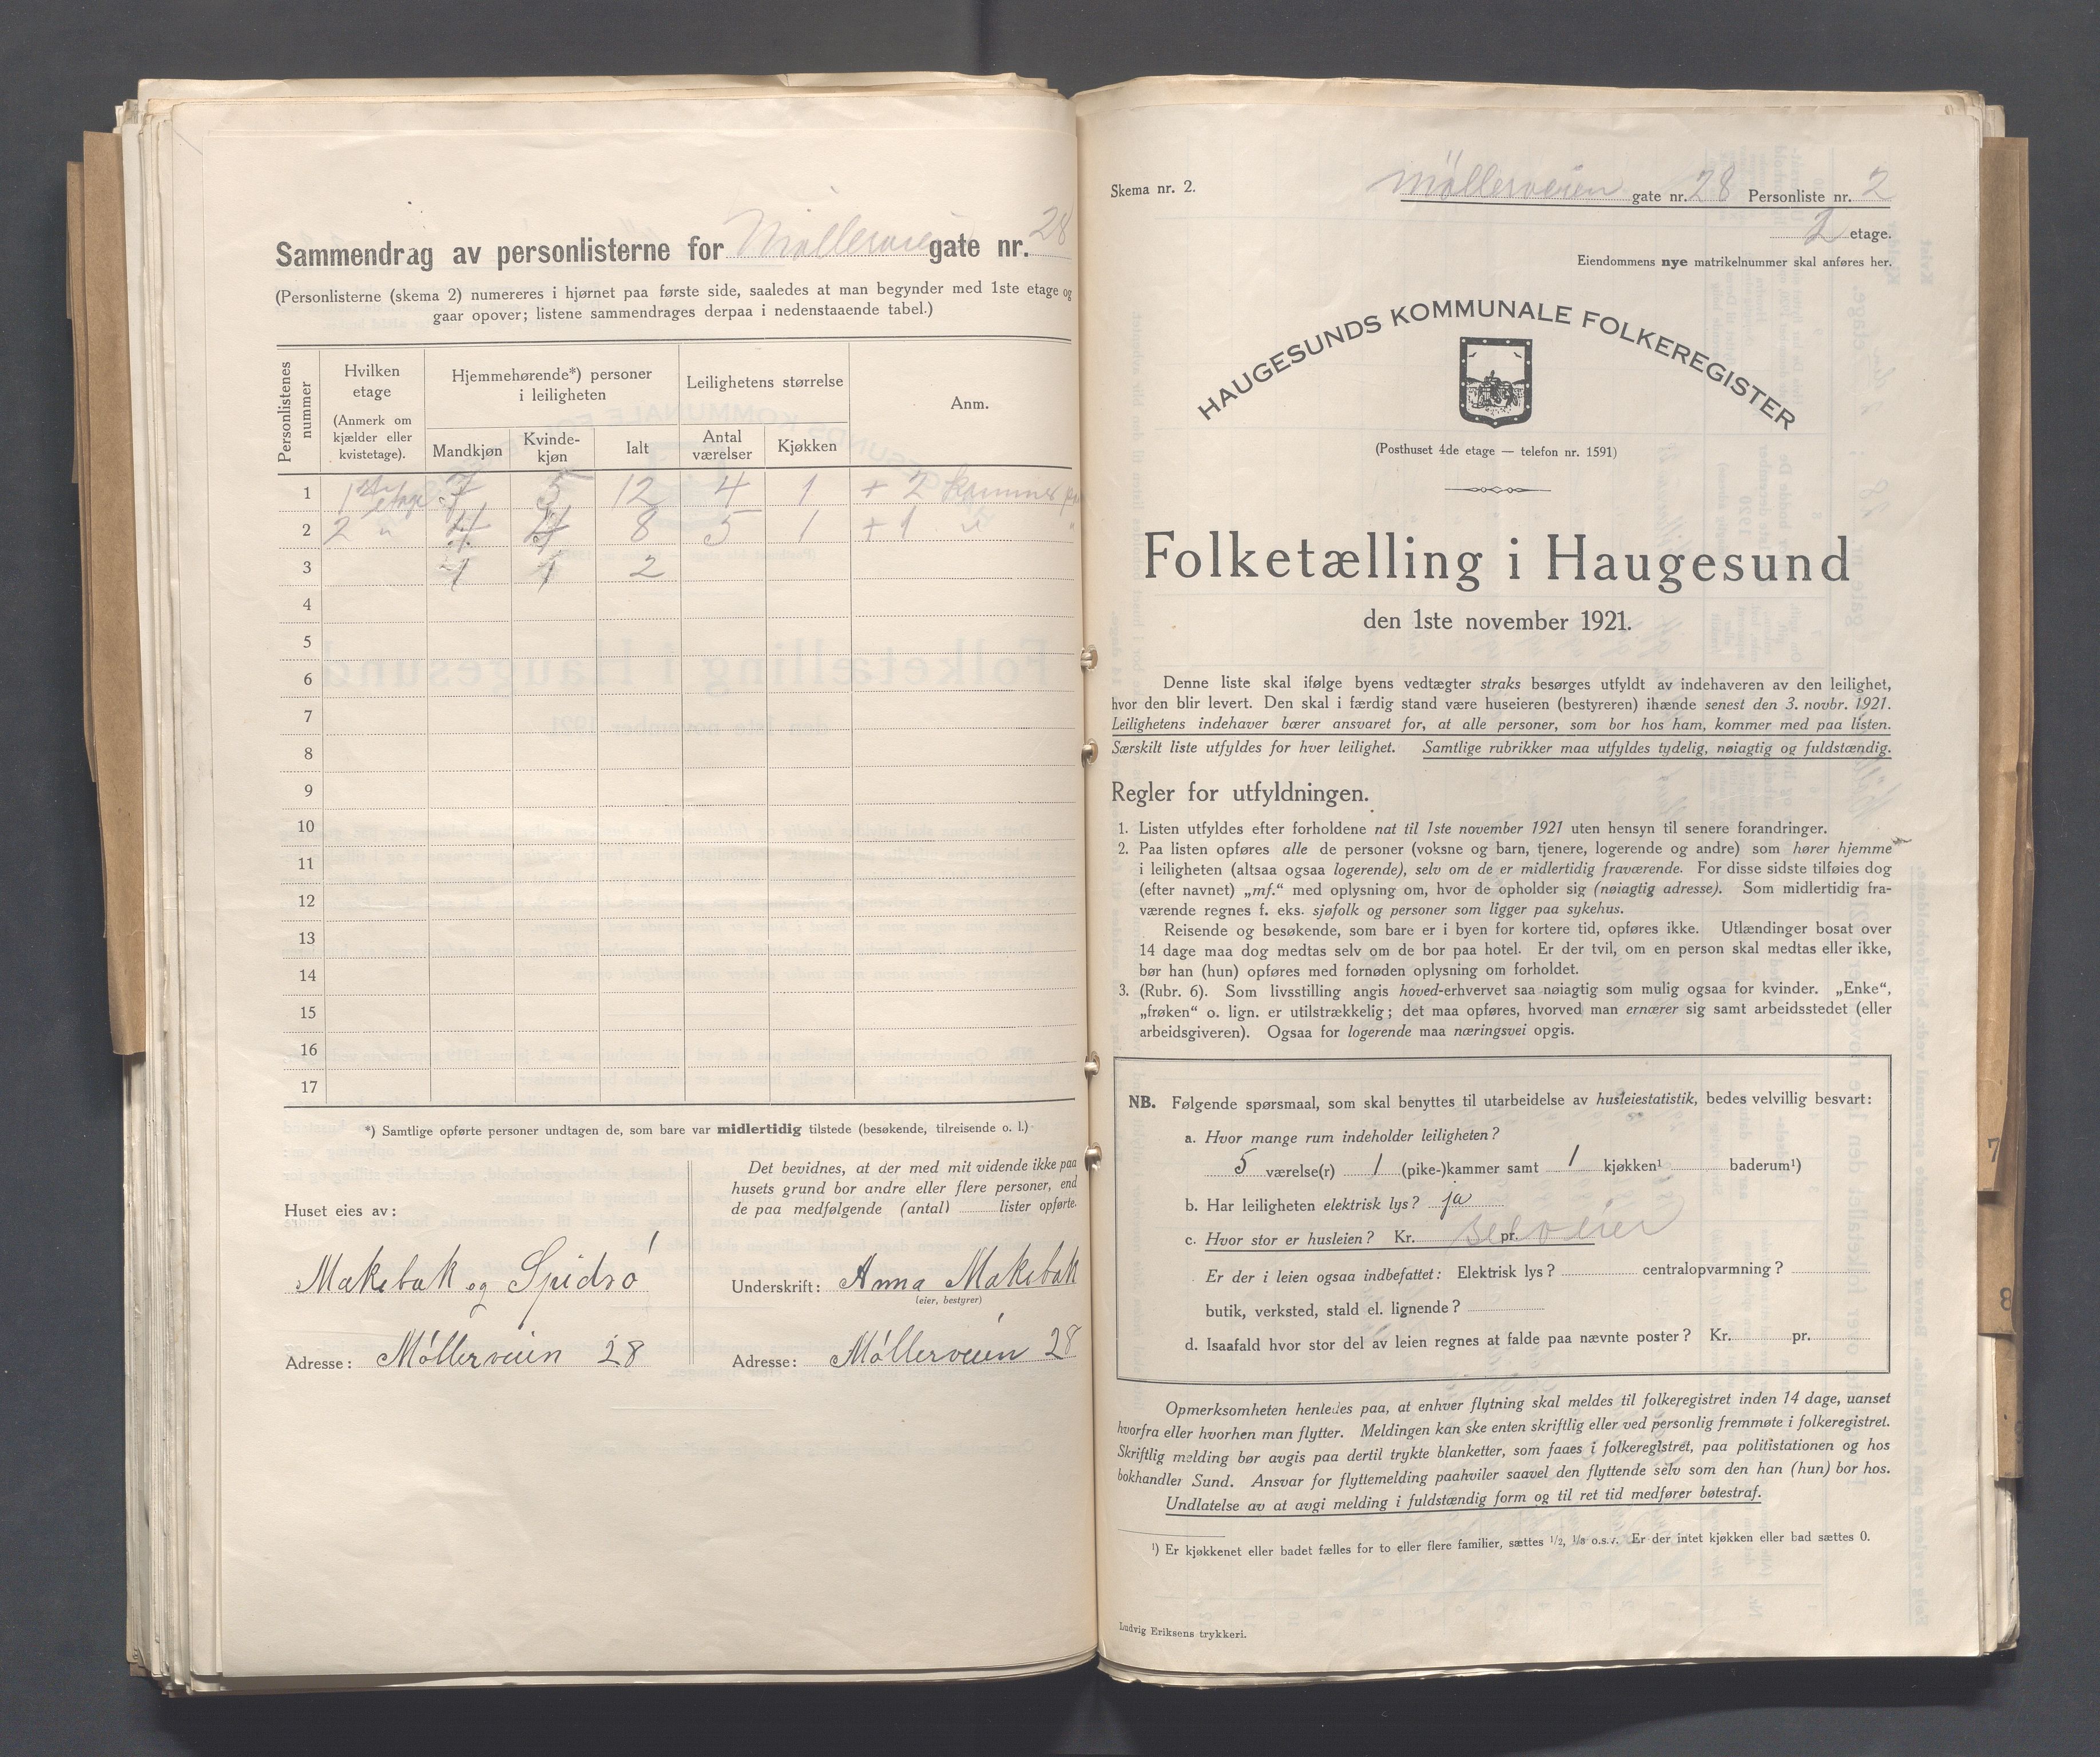 Sammendrag av personlisterne for Møllerveien gate nr. 28
(Personlisterne (skema 2) numereres i hjørnet paa første side, saaledes at man begynder med 1ste etage og
gaar opover; listene sammendrages derpaa i nedenstaaende tabel.)
Personlistenes nummer
Hvilken etage
(Anmerk om kjælder eller kvistetage).
Hjemmehørende*) personer i leiligheten
Leilighetens størrelse
Anm.
Mandkjøn Kvinde-kjøn Ialt Antal værelser Kjøkken
1 1ste etage 7 5 12 4 1 + 2 kammer
2 2 " 4 4 8 5 1 + 1 " "
3 1 1 2
4
5
6
7
8
9
10
11
12
13
14
15
16
17
*) Samtlige opførte personer undtagen de, som bare var midlertidig tilstede (besøkende, tilreisende o. l.)
Huset eies av:
Makebak og Spidsø
Adresse: Møllerveien 28
Det bevidnes, at der med mit vidende ikke paa
husets grund bor andre eller flere personer, end
de paa medfølgende (antal) lister opførte.
Underskrift: Anna Makebak
(eier, bestyrer)
Adresse: Møllerveien 28
Skema nr. 2.
Møllerveien gate nr. 28 Personliste nr. 2
2 etage.
Eiendommens nye matrikelnummer skal anføres her.
HAUGESUNDS KOMMUNALE FOLKEREGISTER
(Posthuset 4de etage — telefon nr. 1591)
Folketælling i Haugesund
den 1ste november 1921.
Denne liste skal ifølge byens vedtægter straks besørges utfyldt av indehaveren av den leilighet,
hvor den blir levert. Den skal i færdig stand være huseieren (bestyreren) ihænde senest den 3. novbr. 1921.
Leilighetens indehaver bærer ansvaret for, at alle personer, som bor hos ham, kommer med paa listen.
Særskilt liste utfyldes for hver leilighet. Samtlige rubrikker maa utfyldes tydelig, nøiagtig og fuldstændig.
Regler for utfyldningen.
1. Listen utfyldes efter forholdene nat til 1ste november 1921 uten hensyn til senere forandringer.
2. Paa listen opføres alle de personer (voksne og barn, tjenere, logerende og andre) som hører hjemme
i leiligheten (altsaa ogsaa logerende), selv om de er midlertidig fraværende. For disse sidste tilføies dog
(efter navnet) „mf.“ med oplysning om, hvor de opholder sig (nøiagtig adresse). Som midlertidig fra-
værende regnes f. eks. sjøfolk og personer som ligger paa sykehus.
Reisende og besøkende, som bare er i byen for kortere tid, opføres ikke. Utlændinger bosat over
14 dage maa dog medtas selv om de bor paa hotel. Er der tvil, om en person skal medtas eller ikke,
bør han (hun) opføres med fornøden oplysning om forholdet.
3. (Rubr. 6). Som livsstilling angis hoved-erhvervet saa nøiagtig som mulig ogsaa for kvinder. „Enke“,
„frøken“ o. lign. er utilstrækkelig; det maa opføres, hvorved man ernærer sig samt arbeidsstedet (eller
arbeidsgiveren). Ogsaa for logerende maa næringsvei opgis.
NB. Følgende spørsmaal, som skal benyttes til utarbeidelse av husleiestatistik, bedes velvillig besvart:
a. Hvor mange rum indeholder leiligheten?
5 værelse(r) 1 (pike-)kammer samt 1 kjøkken¹ baderum¹)
b. Har leiligheten elektrisk lys? ja
c. Hvor stor er husleien? Kr. pr. selveier
Er der i leien ogsaa indbefattet: Elektrisk lys? centralopvarmning?
butik, verksted, stald el. lignende?
d. Isaafald hvor stor del av leien regnes at falde paa nævnte poster? Kr. pr.
Opmerksomheten henledes paa, at enhver flytning skal meldes til folkeregistret inden 14 dage, uanset
hvorfra eller hvorhen man flytter. Meldingen kan ske enten skriftlig eller ved personlig fremmøte i folkeregistret.
Skriftlig melding bør avgis paa dertil trykte blanketter, som faaes i folkeregistret, paa politistationen og hos
bokhandler Sund. Ansvar for flyttemelding paahviler saavel den flyttende selv som den han (hun) bor hos.
Undlatelse av at avgi melding i fuldstændig form og til ret tid medfører bøtestraf.
¹) Er kjøkkenet eller badet fælles for to eller flere familier, sættes 1/2, 1/3 o.s.v. Er der intet kjøkken eller bad sættes 0.
Ludvig Eriksens trykkeri.
7
8